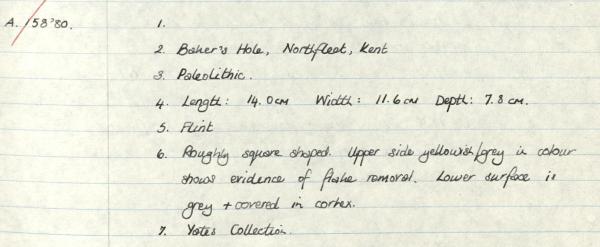 A. 158'80. 1.
2. Baker's Hole, Northfleet, Kent
3. Paleolithic.
4. Length: 14.0cm Width: 11.6cm Depth: 7.8cm.
5. Flint
6. Roughly square shaped. Upper side yellowish/grey in colour
shows evidence of flake removal. Lower surface is
grey + covered in cortex.
7. Yates Collection.